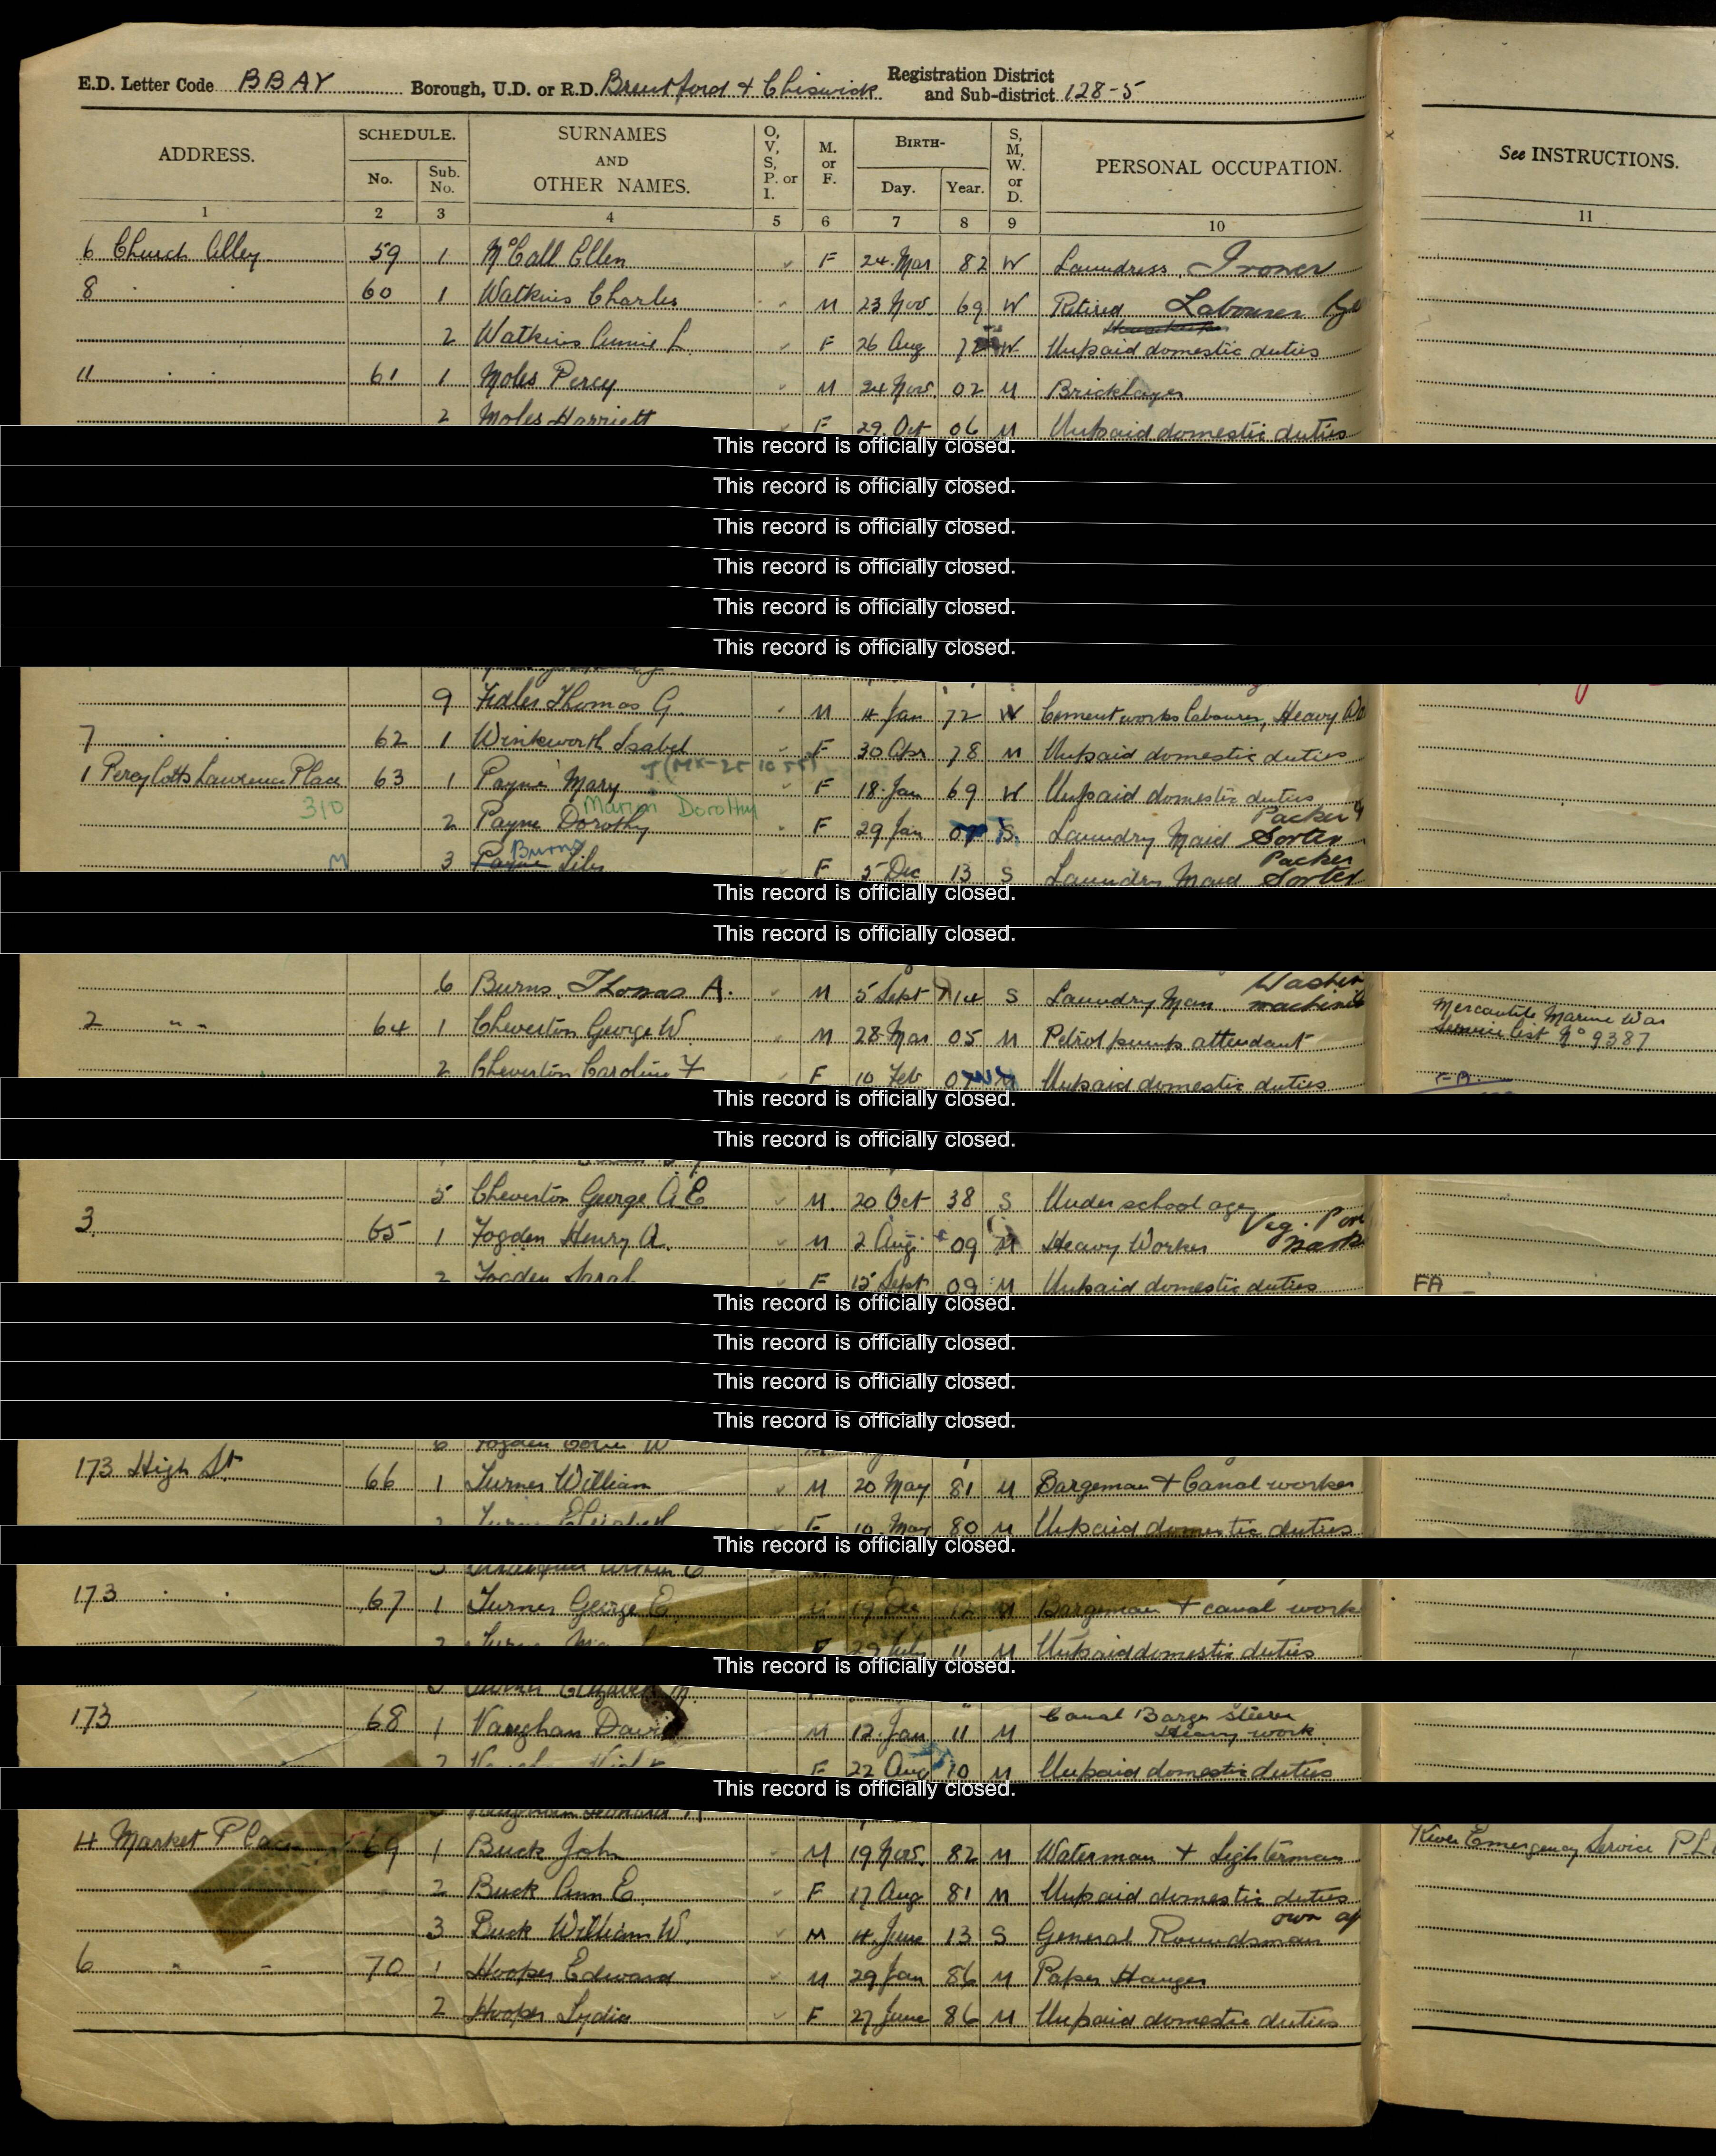 E.D. Letter Code BBAY Borough, U.D. or R.D. Brentford & Chiswick Registration District and Sub-district 128-5
ADDRESS. SCHEDULE. No. Sub. No. SURNAMES AND OTHER NAMES. O, V, S, P. or I. M. or F. BIRTH- Day. Year. S, M, W. or D. PERSONAL OCCUPATION. See INSTRUCTIONS.
1 2 3 4 5 6 7 8 9 10 11
6 Church Alley 59 1 McCall Ellen F 24 Mar 82 W Laundress Ironer
8 60 1 Watkins Charles M 23 Nov. 69 W Retired Labourer
2 Watkins Annie L. F 26 Aug W Unpaid domestic duties
11 61 1 Moles Percy M 24 Nov. 02 M Bricklayer
2 Moles Harriett F 29 Oct 06 M Unpaid domestic duties
This record is officially closed.
This record is officially closed.
This record is officially closed.
This record is officially closed.
This record is officially closed.
This record is officially closed.
9 Thomas G. M 4 Jan 72 W Cement works labourer, Heavy
7 62 1 Winkworth Isabel F 30 Apr 78 M Unpaid domestic duties
1 Percy Cotts Lawrence Place 63 1 Payne Mary F 18 Jan 69 W Unpaid domestic duties
310 Marion Dorothy Packer &
2 Payne Dorothy F 29 Jan 07 S. Laundry Maid Sorter
Burns Packer
M 3 Payne F 5 Dec 13 S Laundry Maid Sorter
This record is officially closed.
This record is officially closed.
6 Burns, Thomas A. M 5 Sept 14 S Laundry Man.
Mercantile Marine War
2 " " 64 1 Cheverton George W. M 28 Mar 05 M Petrol pump attendant Service List No 9387
2 Cheverton Caroline F F 10 Feb 07 M Unpaid domestic duties
This record is officially closed.
This record is officially closed.
5 Cheverton George A.E. M. 20 Oct 38 S Under school age
3. 65 1 Fogden Henry A. M 2 Aug. 09 M Heavy Worker Veg.
2 Fogden Sarah F 15 Sept 09 M Unpaid domestic duties FA
This record is officially closed.
This record is officially closed.
This record is officially closed.
This record is officially closed.
6 Fogden W
173 High St 66 1 Turner William M 20 May 81 M Bargeman & Canal worker
2 Turner Elizabeth F 10 May 80 M Unpaid domestic duties
This record is officially closed.
173 67 1 Turner George E. M 19 Dec 12 M Bargeman & canal work
F 29 July 11 M Unpaid domestic duties
This record is officially closed.
173 68 1 Vaughan David M 12 Jan 11 M Canal Barge steerer
Heavy work
2 F 22 Aug 10 M Unpaid domestic duties
This record is officially closed.
4 Market Place 69 1 Buck John M 19 Nov. 82 M Waterman & Lighterman River Emergency Service P.L
2 Buck Ann E. F 17 Aug 81 M Unpaid domestic duties
3 Buck William W. M 4 June 13 S General Roundsman own
6 " " 70 1 Hooper Edward M 29 Jan 86 M Paper Hanger
2 Hooper Lydia F 27 June 86 M Unpaid domestic duties